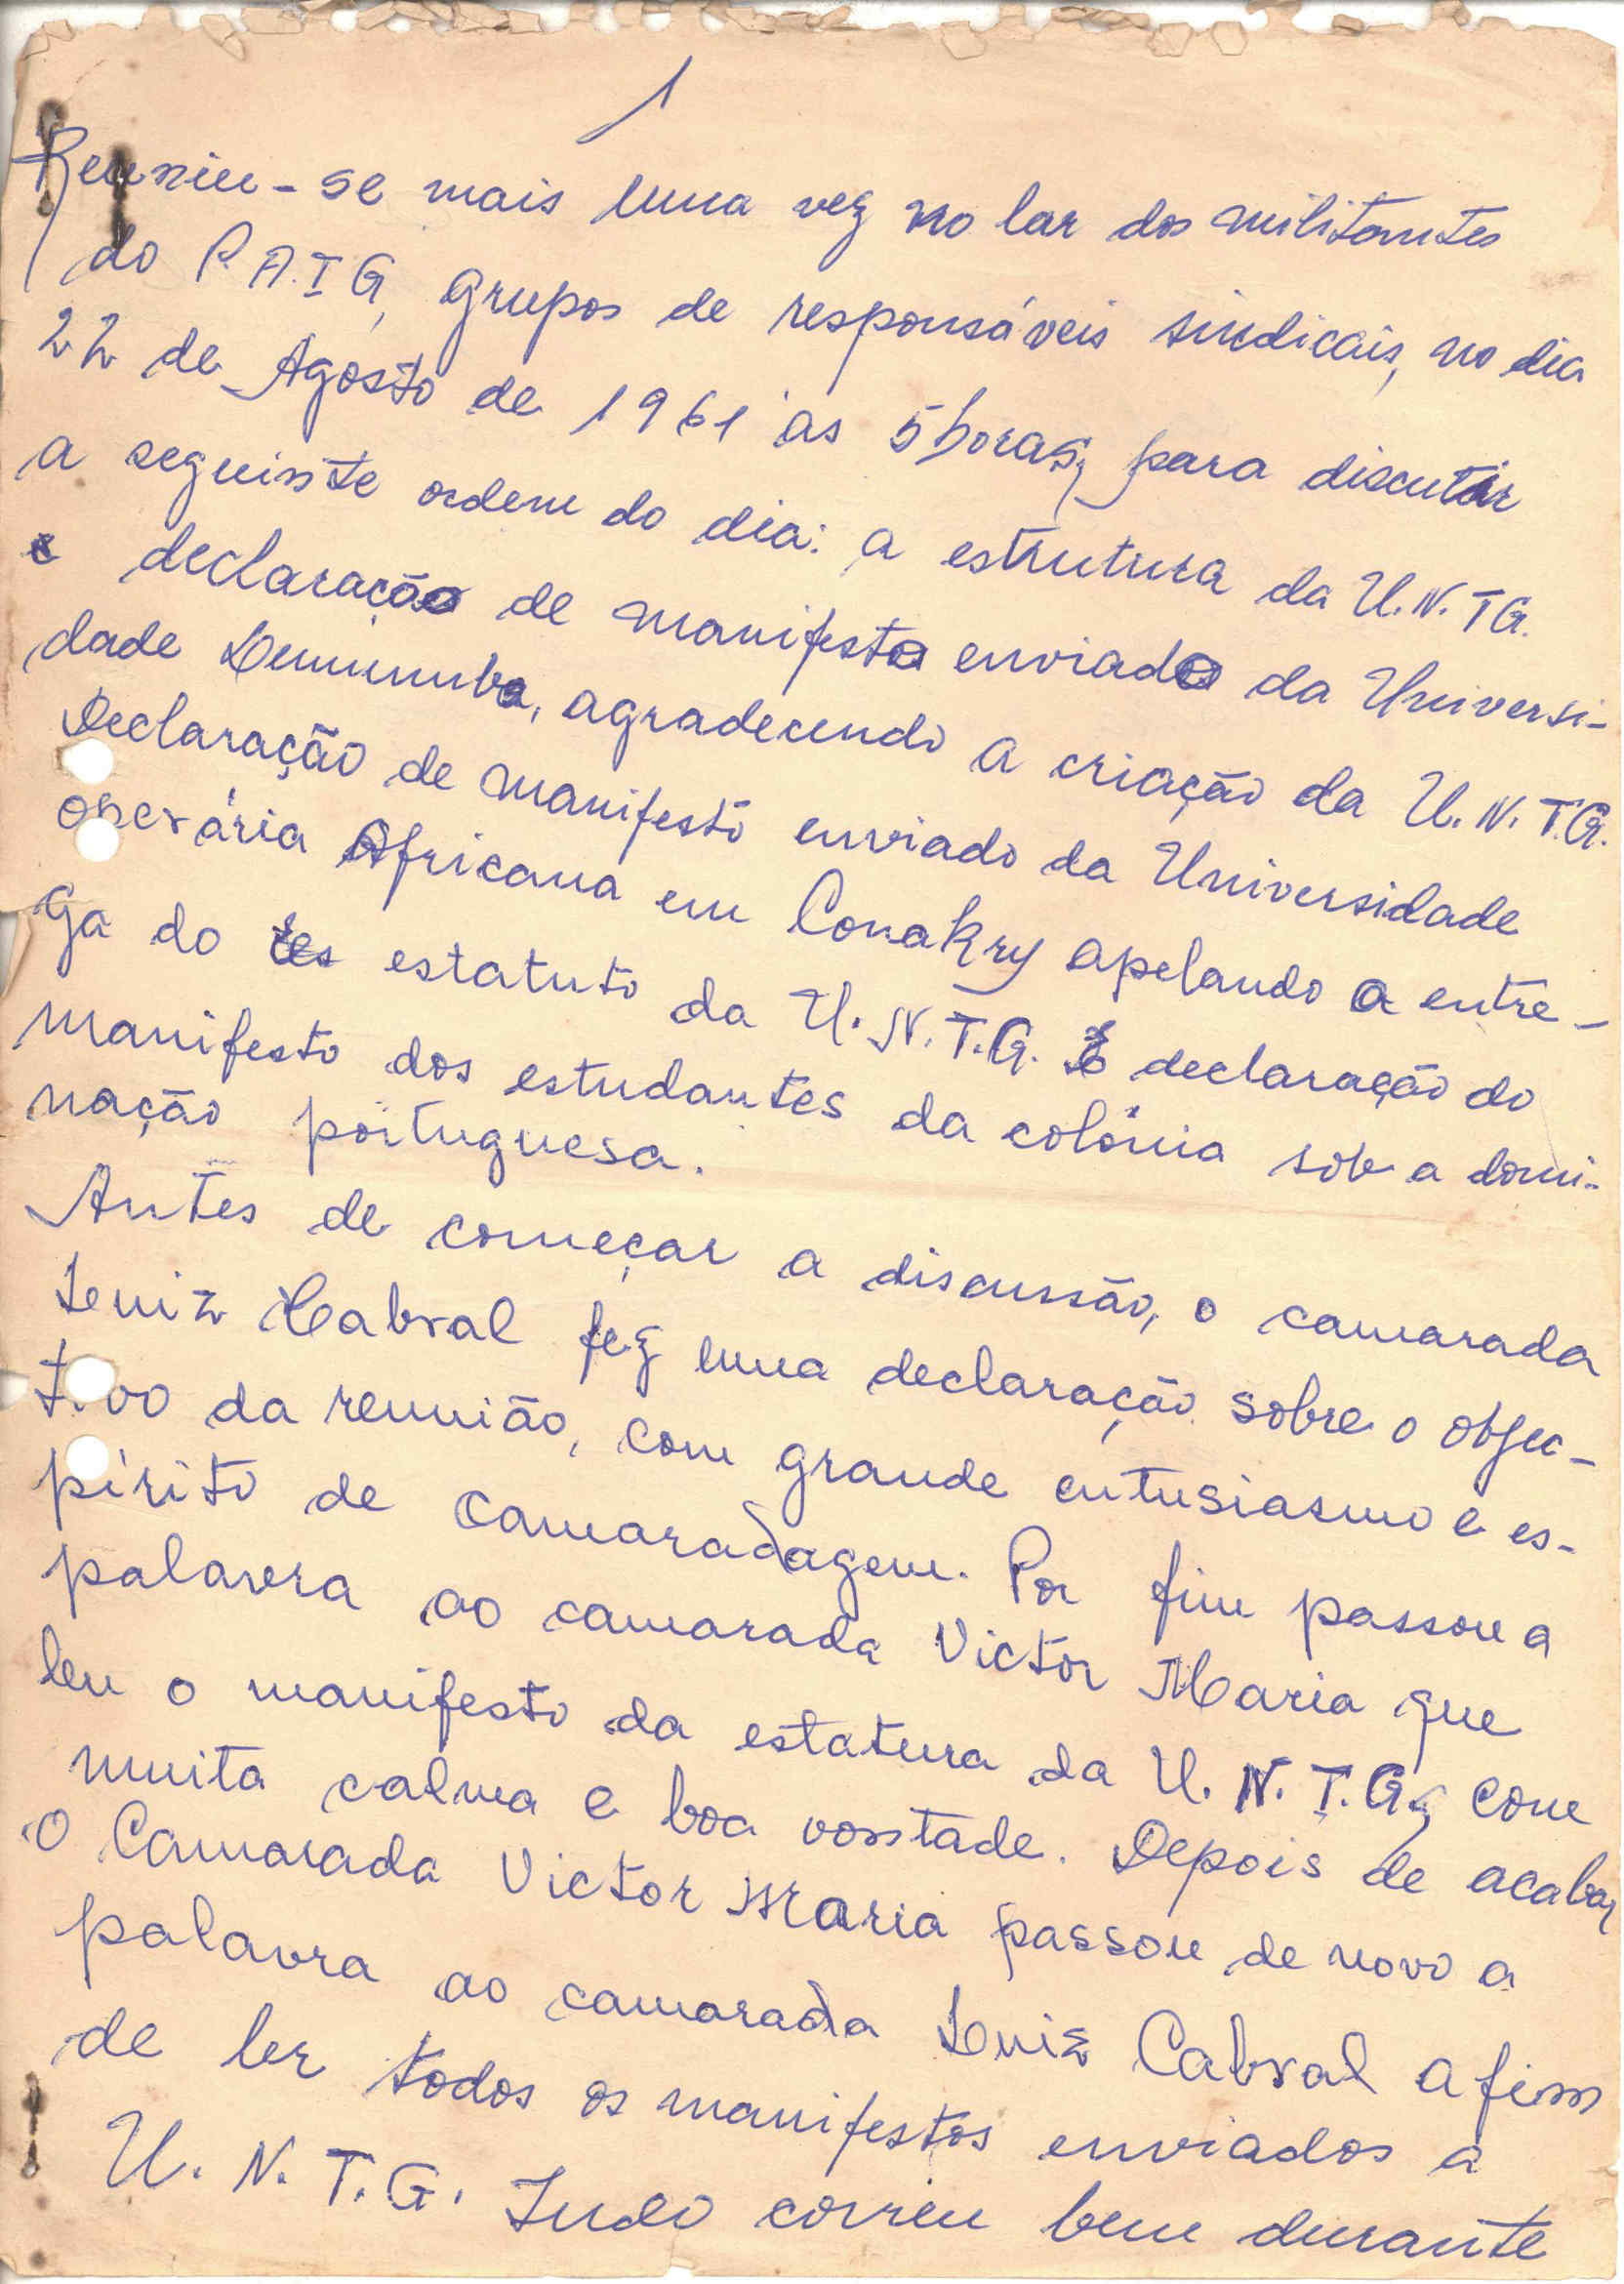 1
Reuniu-se mais uma vez no lar dos militantes
do P.A.I G, grupos de responsáveis sindicais, no dia
22 de Agosto de 1961 às 5 horas, para discutir
a seguinte ordem do dia: a estrutura da U.N.TG.
e declaração de manifesto enviado da Universi-
dade, agradecendo a criação da U.N.T.G.
Declaração de manifesto enviado da Universidade
operária Africana em Conakry apelando a entre-
ga do estatuto da U.N.T.G. E declaração do
manifesto dos estudantes da colónia sob a domi-
nação portuguesa.
Antes de começar a discussão, o camarada
Luiz Cabral fez uma declaração sobre o objec-
tivo da reunião, com grande entusiasmo e es-
pírito de camaradagem. Por fim passou a
palavra ao camarada Victor Maria que
leu o manifesto da estatura da U.N.T.G, com
muita calma e boa vontade. Depois de acabar
O Camarada Victor Maria passou de novo a
palavra ao camarada Luiz Cabral a fim
de ler todos os manifestos enviados à
U.N.T.G. Tudo correu bem durante